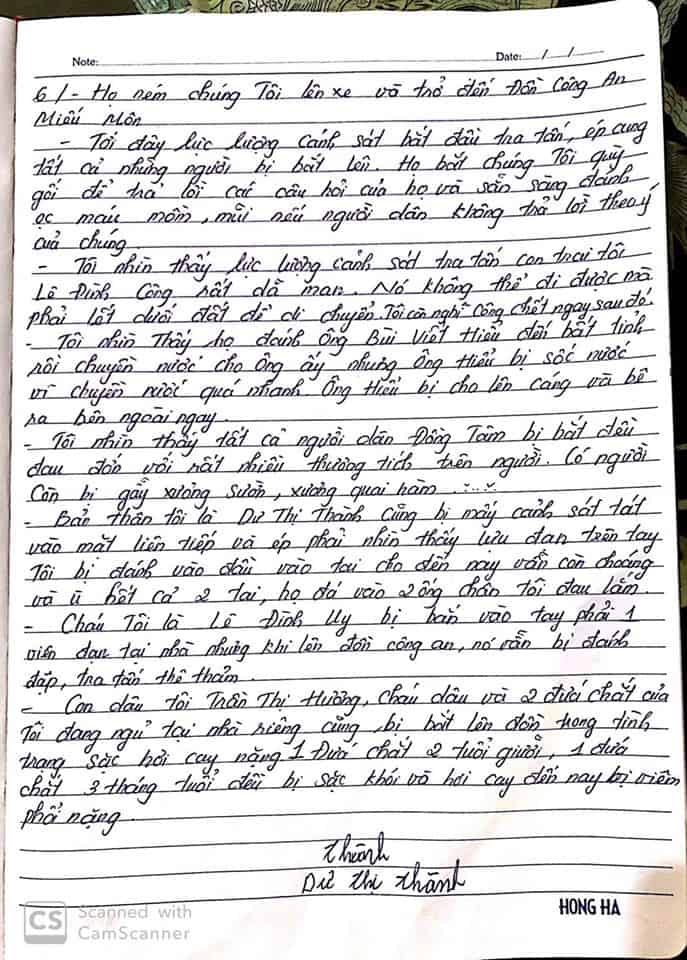 Note:
Date: / /
6/- Họ ném chúng Tôi lên xe và trở đến Đồn Công An
Miếu Môn
- Tới đây lực lượng cảnh sát bắt đầu tra tấn, ép cung
tất cả những người bị bắt lên. Họ bắt chúng Tôi quỳ
gối để trả lời các câu hỏi của họ và sẵn sàng đánh
ọc máu mồm, mũi nếu người dân không trả lời theo ý
của chúng.
- Tôi nhìn thấy lực lượng cảnh sát tra tấn con trai tôi
Lê Đình Công rất dã man. Nó không thể đi được mà
phải lết dưới đất để di chuyển. Tôi còn nghĩ Công chết ngay sau đó.
- Tôi nhìn Thấy họ đánh Ông Bùi Viết Hiểu đến bất tỉnh
rồi chuyền nước cho Ông ấy nhưng Ông Hiểu bị sốc nước
vì chuyền nước quá nhanh. Ông Hiểu bị cho lên cáng và bê
ra bên ngoài ngay.
- Tôi nhìn thấy tất cả người dân Đồng Tâm bị bắt đều
đau đớn với rất nhiều thương tích trên người. Có người
Còn bị gẫy xương sườn, xương quai hàm .....
- Bản thân tôi là Dư Thị Thành Cũng bị mấy cảnh sát tát
vào mặt liên tiếp và ép phải nhìn thấy lựu đạn trên tay
Tôi bị đánh vào đầu vào tai cho đến nay vẫn còn choáng
và ù hết cả 2 tai, họ đá vào 2 ống chân tôi đau lắm.
- Cháu Tôi là Lê Đình Uy bị bắn vào tay phải 1
viên đạn tại nhà nhưng khi lên đồn công an, nó vẫn bị đánh
đập, tra tấn thê thảm.
- Con dâu tôi Trần Thị Hương, cháu dâu và 2 đứa chắt của
Tôi đang ngủ tại nhà riêng cũng bị bắt lên đồn trong tình
trạng sặc hơi cay nặng 1 Đứa chắt 2 tuổi giưỡi, 1 đứa
chắt 3 tháng tuổi đều bị sặc khói và hơi cay đến nay bị viêm
phổi nặng.
Thành
Dư Thị Thành
HONG HA
CS Scanned with
CamScanner